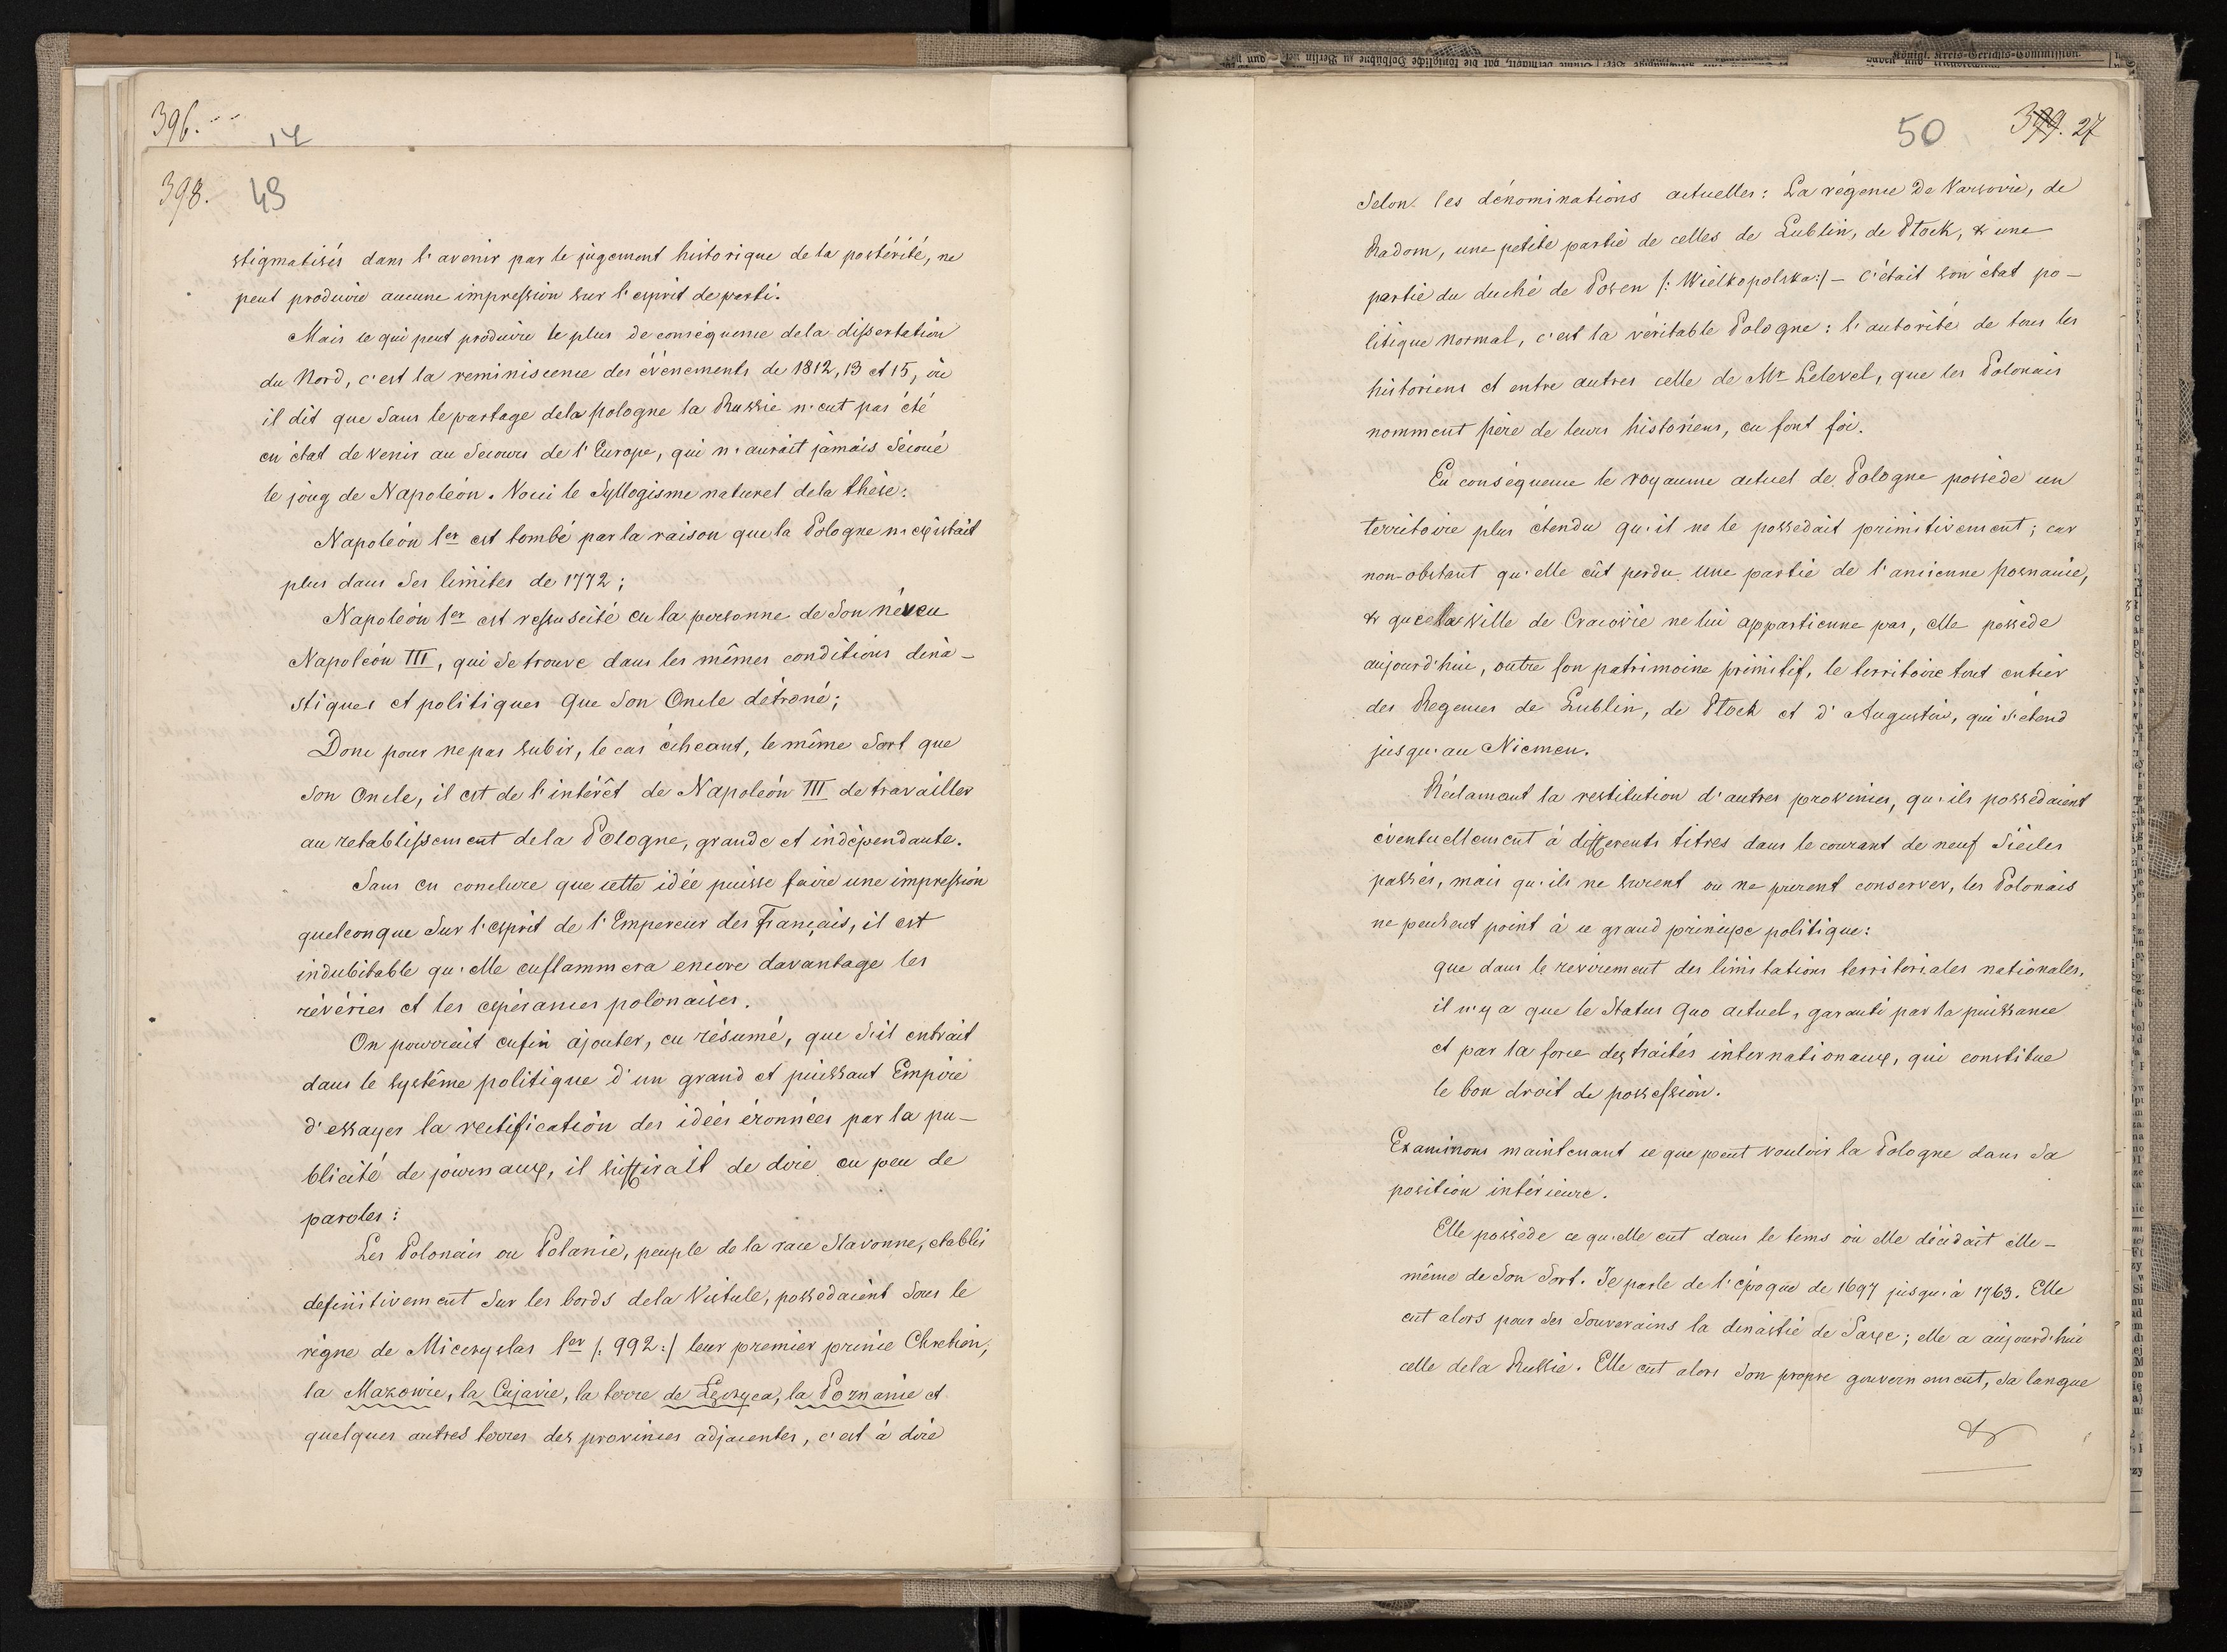 396.
14
398. 49
stigmatisés dans l'avenir par le jugement historique de la postérité, ne
peut produire aucune impression sur l'esprit de parti.
Mais ce qui peut produire le plus de conséquence de la dissertation
du Nord, c'est la reminiscence des événements de 1812, 13 et 15, où
il dit que sans le partage de la pologne la Russie n'eut pas été
en état de venir au Secours de l'Europe, qui n'aurait jamais Sécoué
le joug de Napoléon. Voici le Syllogisme naturel de la thèse:
Napoléon 1er est tombé par la raison que la Pologne n'existait
plus dans Ses limites de 1772;
Napoléon 1er est ressuscité en la personne de Son néveu
Napoléon III, qui Se trouve dans les mêmes conditions dina-
stiques et politiques Que Son Oncle détroné;
Donc pour ne pas subir, le cas échéant, le même Sort que
Son Oncle, il est de l'intérêt de Napoléon III de travailler
au retablissement de la Pologne, grande et indépendante.
Sans en conclure que cette idée puisse faire une impression
quelconque Sur l'esprit de l'Empereur des Français, il est
indubitable qu'elle enflammera encore davantage les
rêvéries et les espérances polonaises.
On pourrait enfin ajouter, en résumé, que S'il entrait
dans le système politique d'un grand et puissant Empire
d'essayer la rectification des idées éronnées par la pu-
blicité de journaux, il suffirait de dire en peu de
paroles:
Les Polonais ou Polanie, peuple de la race Slavonne, etablis
definitivement Sur les bords de la Vistule, possedaient Sous le
règne de Miceryslas 1er /: 992 :/ leur premier prince Chretien,
la Mazowie, la Cujavie, la terre de Łęczyca, la Poznanie et
quelques autres terres des provinces adjacentes, c'est à dire
50 399. 27
Selon les dénominations actuelles: La régence de Varsovie, de
Radom, une petite partie de celles de Lublin, de Płock, & une
partie du duché de Posen /: Wielkopolska :/ – c'était son état po-
litique normal, c'est la véritable Pologne: l'autorité de tous les
historiens et entre autres celle de Mr Lelevel, que les Polonais
nomment père de leurs historiens, en font foi.
En conséquence le royaume actuel de Pologne possède un
territoire plus étendu qu'il ne le possedait primitivement; car
non-obstant qu'elle eût perdu une partie de l'ancienne posnanie,
& que la ville de Cracovie ne lui appartienne pas, elle possède
aujourd'hui, outre son patrimoine primitif, le territoire tout entier
des Regences de Lublin, de Płock et d'Augustow, qui s'étend
jusqu'au Niemen.
Réclamant la restitution d'autres provinces, qu'ils possedaient
éventuellement à differents titres dans le courant de neuf Siècles
passés, mais qu'ils ne surent ou ne purent conserver, les Polonais
ne pensent point à ce grand principe politique:
que dans le revirement des limitations territoriales nationales,
il n'y a que le Status Quo actuel, garanti par la puissance
et par la force des traités internationaux, qui constitue
le bon droit de possession.
Examinons maintenant ce que peut vouloir la Pologne dans Sa
position intérieure.
Elle possède ce qu'elle eut dans le tems où elle décidait elle-
même de Son Sort. Je parle de l'époque de 1697 jusqu'à 1763. Elle
eut alors pour Ses Souverains la dinastie de Saxe; elle a aujourd'hui
celle de la Russie. Elle eut alors Son propre gouvernement, Sa langue
&